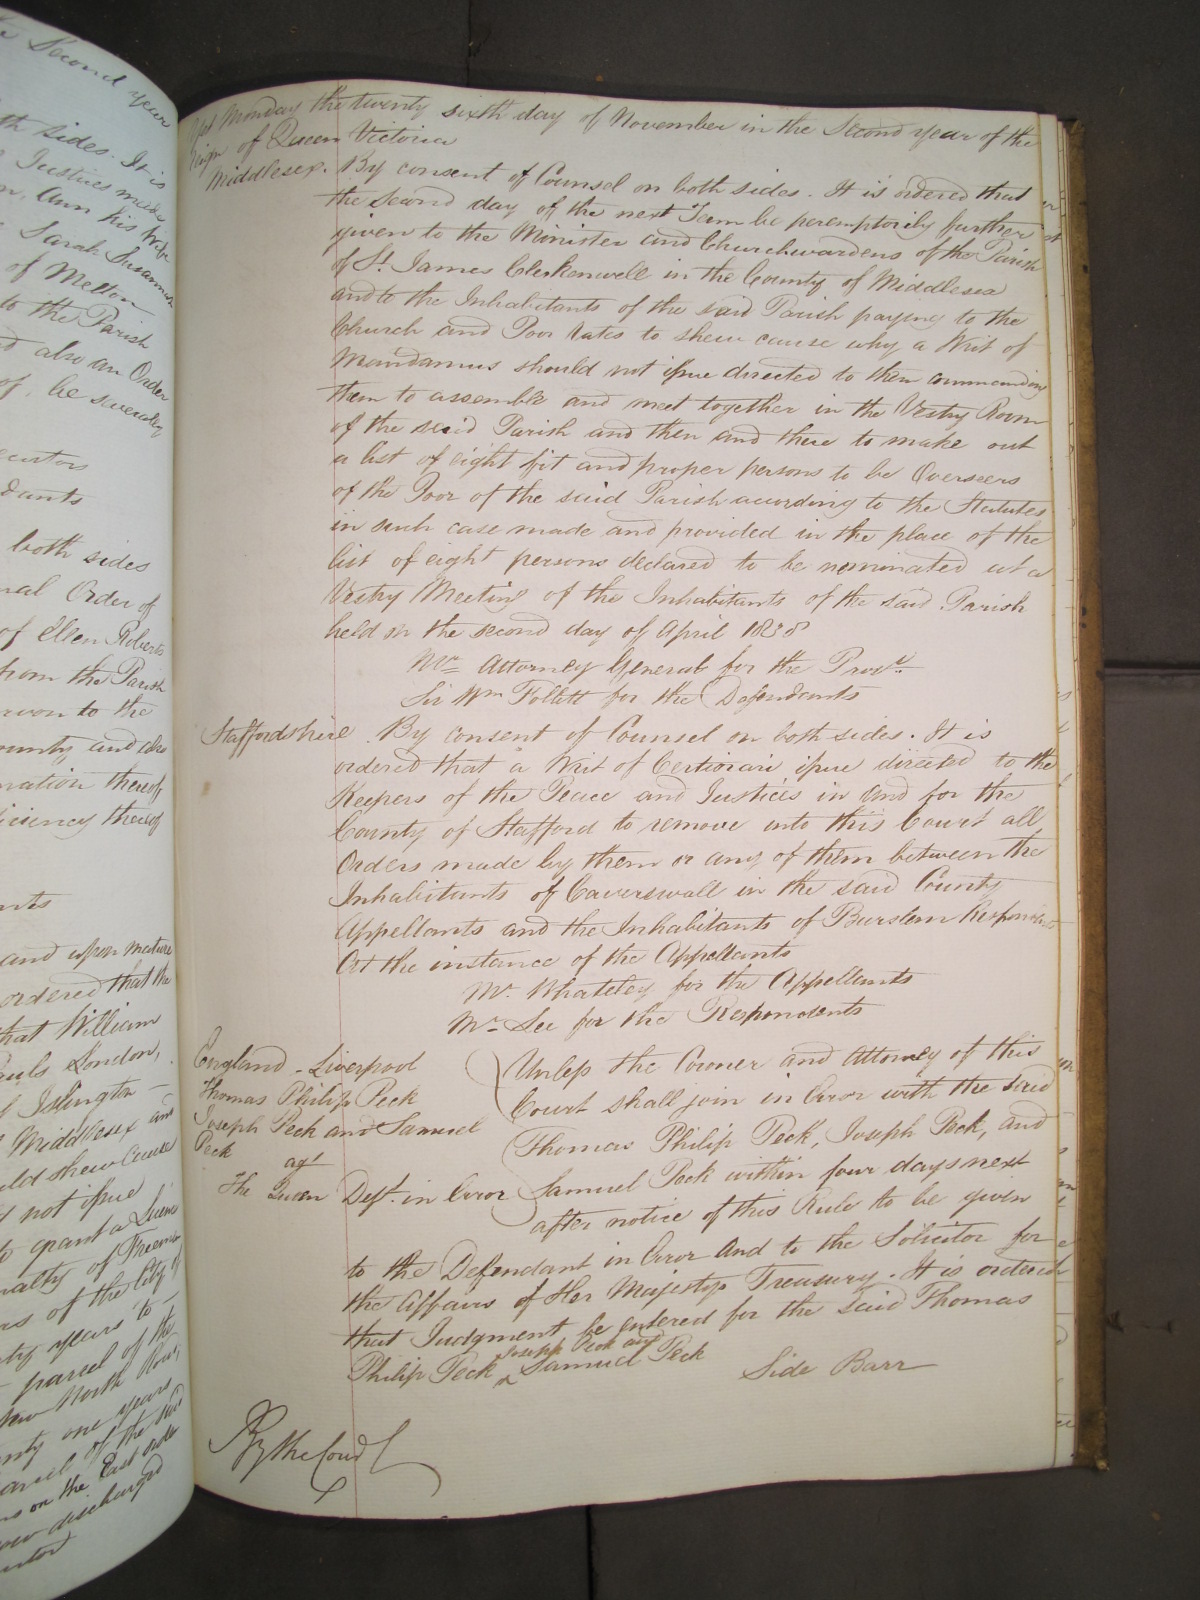 the Second year
th sides. It is
Justices made
n, Ann his wife
Sarah Susannah
of Melton
to the Parish
d also an Order
of, be severally
ecutors
dants
both sides
nal Order of
of Ellen Roberts
from the Parish
rvon to the
ounty and also
mation thereof
iciency thereof
nts
and upon mature
ordered that the
that William
auls London,
f Islington
Middlesex and
uld shew Cause
not issue
to grant a Licence
nalty of Freeman
as of the City of
ty years to
parcel of the
New North Road,
nty one years
arcel of the said
ns on the East side
now discharged
Upon Monday the twenty sixth day of November in the Second year of the
Reign of Queen Victoria
Middlesex. By consent of Counsel on both sides. It is ordered that
the second day of the next Term be peremptorily further
given to the Minister and Churchwardens of the Parish
of St. James Clerkenwell in the County of Middlesex
and to the Inhabitants of the said Parish paying to the
Church and Poor Rates to shew cause why a Writ of
Mandamus should not issue directed to them commanding
them to assemble and meet together in the Vestry Room
of the said Parish and then and there to make out
a list of eight fit and proper persons to be Overseers
of the Poor of the said Parish according to the Statutes
in such case made and provided in the place of the
list of eight persons declared to be nominated at a
Vestry Meeting of the Inhabitants of the said Parish
held on the second day of April 1838
Mr. Attorney General for the Pros.
Sir Wm Follett for the Defendants
Staffordshire By consent of Counsel on both sides. It is
ordered that a Writ of Certiorari issue directed to the
Keepers of the Peace and Justices in and for the
County of Stafford to remove into this Court all
Orders made by them or any of them between the
Inhabitants of Caverswall in the said County
Appellants and the Inhabitants of Burslem Respondents
At the instance of the Appellants
Mr. Whateley for the Appellants
Mr. Lee for the Respondents
England - Liverpool
Thomas Philip Peck
Joseph Peck and Samuel
Peck
agt
The Queen Deft. in Error
Unless the Coroner and Attorney of this
Court shall join in Error with the said
Thomas Philip Peck, Joseph Peck, and
Samuel Peck within four days next
after notice of this Rule to be given
to the Defendant in Error and to the Solicitor for
the Affairs of Her Majestys Treasury. It is ordered
that Judgment be entered for the said Thomas
Philip Peck Joseph Peck and Samuel Peck Side Barr
By the Court